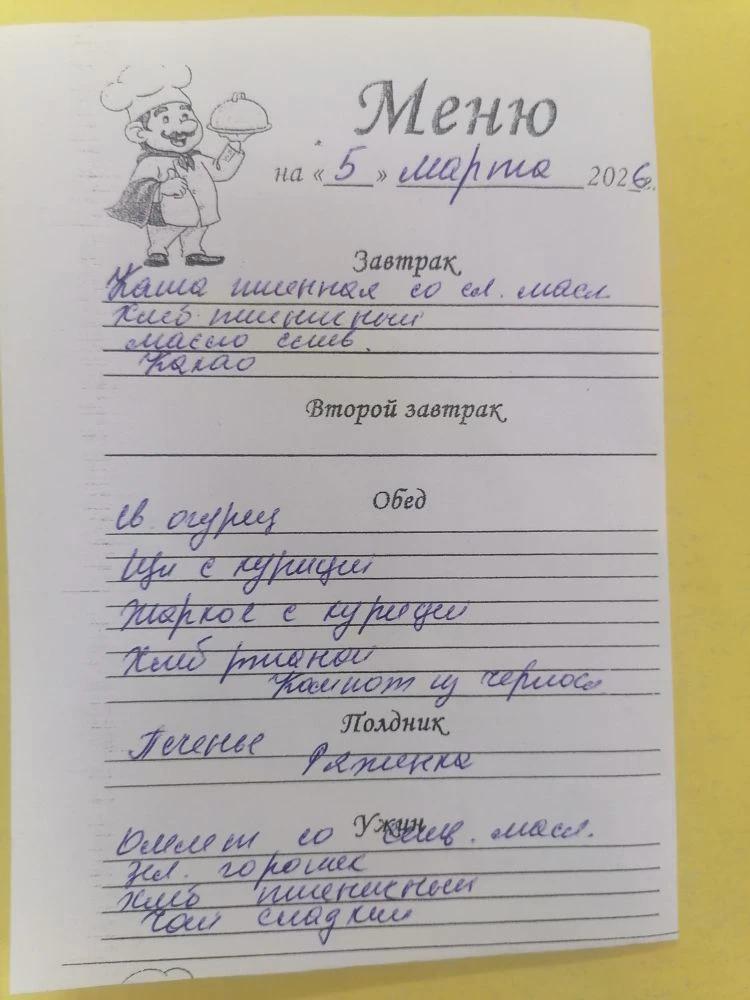 Меню
на «5» марта 2026г.
Завтрак
Каша пшенная со сл. масл
Хлеб пшеничный
масло слив.
Какао
Второй завтрак
Обед
св. огурец
Щи с курицей
Жаркое с курицей
Хлеб ржаной
Компот из чернос
Полдник
Печенье
Ряженка
Ужин
Омлет со слив. масл.
зел. горошек
хлеб пшеничный
Чай сладкий